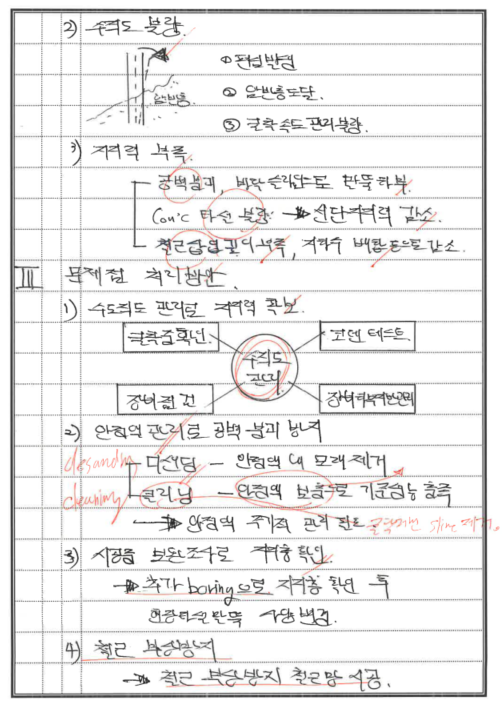 2) 수직도 불량.
① 편심반영
암반층.
② 암반층 도달.
③ 굴착속도 관리불량.
3) 지지력 부족.
공벽붕괴, 바닥 슬라임으로 말뚝하부.
Con'c 타설 불량 → 선단지지력 감소.
철근 부족, 지하수 감소.
III 문제점 처리방안.
1) 수직도 관리로 지지력 확보.
굴착중확인.
코덴 테스트.
수직도 관리.
장비점검
2) 안정액 관리로 공벽 붕괴 방지
desanding 디샌딩 - 안정액 내 모래 제거
cleaning 클리닝 - 안정액 보충으로 기준성능 충족
→ 안정액 주기적 관리 필요. slime 제거.
3) 시공중 보완조사로 지지층 확인.
→ 추가 boring으로 지지층 확인 후
현장타설말뚝 사양 변경.
4) 철근 부상방지
→ 철근 부상방지 철근망 시공.